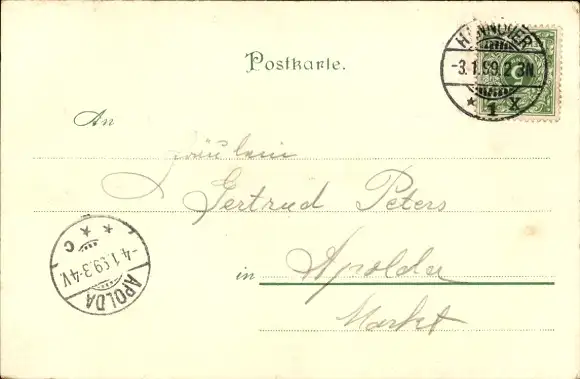 HANNOVER
-3.1.99.2-3N
* 1 X
Postkarte.
An
Fräulein
Gertrud Peters
in Apolda
Markt
* * C
-4.1.99.3-4V.
APOLDA